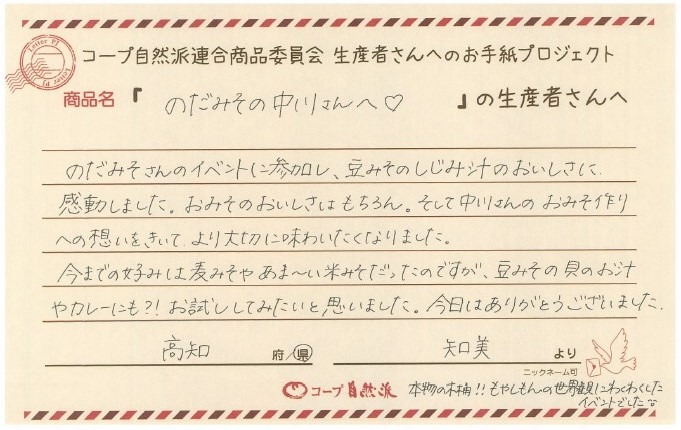 Letter PJ
Letter PJ
コープ自然派連合商品委員会 生産者さんへのお手紙プロジェクト
商品名『 のだみその中川さんへ♡ 』の生産者さんへ
のだみそさんのイベントに参加し、豆みそのしじみ汁のおいしさに
感動しました。おみそのおいしさはもちろん。そして中川さんのおみそ作り
への想いをきいて、より大切に味わいたくなりました。
今までの好みは麦みそやあま〜い米みそだったのですが、豆みその貝のお汁
やカレーにも?!お試ししてみたいと思いました。今日はありがとうございました。
高知 府/県 知美 より
ニックネーム可
コープ自然派 本物の木桶!!もやしもんの世界観にわくわくした
イベントでした